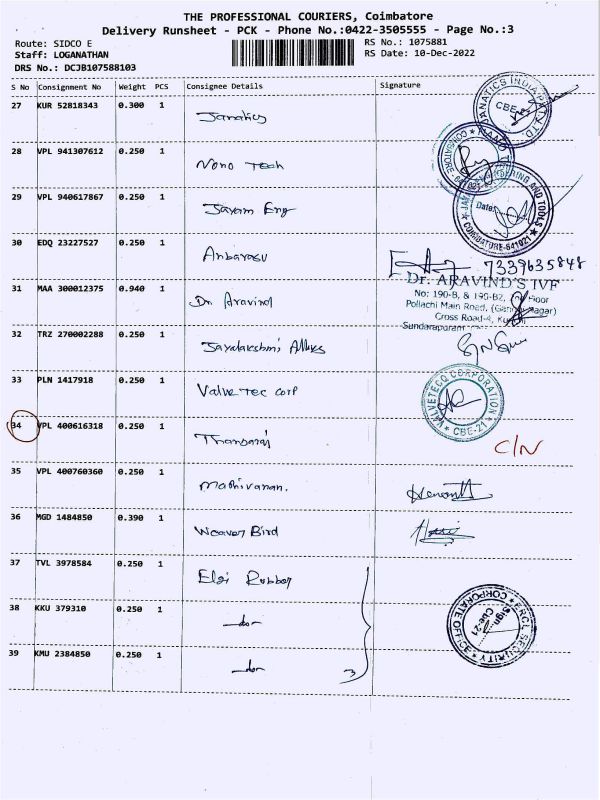 THE PROFESSIONAL COURIERS, Coimbatore
Delivery Runsheet - PCK - Phone No.:0422-3505555 - Page No.:3
Route: SIDCO E
RS No.: 1075881
Staff: LOGANATHAN
RS Date: 10-Dec-2022
DRS No.: DCJB107588103
S No Consignment No Weight PCS Consignee Details Signature
27 KUR 52818343 0.300 1 Janatics
JANATICS INDIA PVT LTD
CBE
28 VPL 941307612 0.250 1 Nono Tech
COIMBATORE
29 VPL 940617867 0.250 1 Jayam Eng
ENGINEERING AND TOOLS
Date:
COIMBATORE-641021
30 EDQ 23227527 0.250 1 Anbarasu
7339635848
31 MAA 300012375 0.940 1 Dr. Aravind
Dr. ARAVIND'S IVF
No: 190-B, & 190-B2, Floor
Pollachi Main Road, (Gandhi Nagar)
Cross Road-4,
Sundarapuram
32 TRZ 270002288 0.250 1 Jayalakshmi Alloys
33 PLN 1417918 0.250 1 Valve Tec Corp
VALVETECQ CORPORATION
CBE-21
34 VPL 400616318 0.250 1
C/N
35 VPL 400760360 0.250 1 Mathivanan.
36 MGD 1484850 0.390 1 Weaver Bird
37 TVL 3978584 0.250 1 Elgi Rubber
38 KKU 379310 0.250 1 -do-
ERCL SECURITY
Sign
Cbe-21
CORPORATE OFFICE
39 KMU 2384850 0.250 1 -do- 3